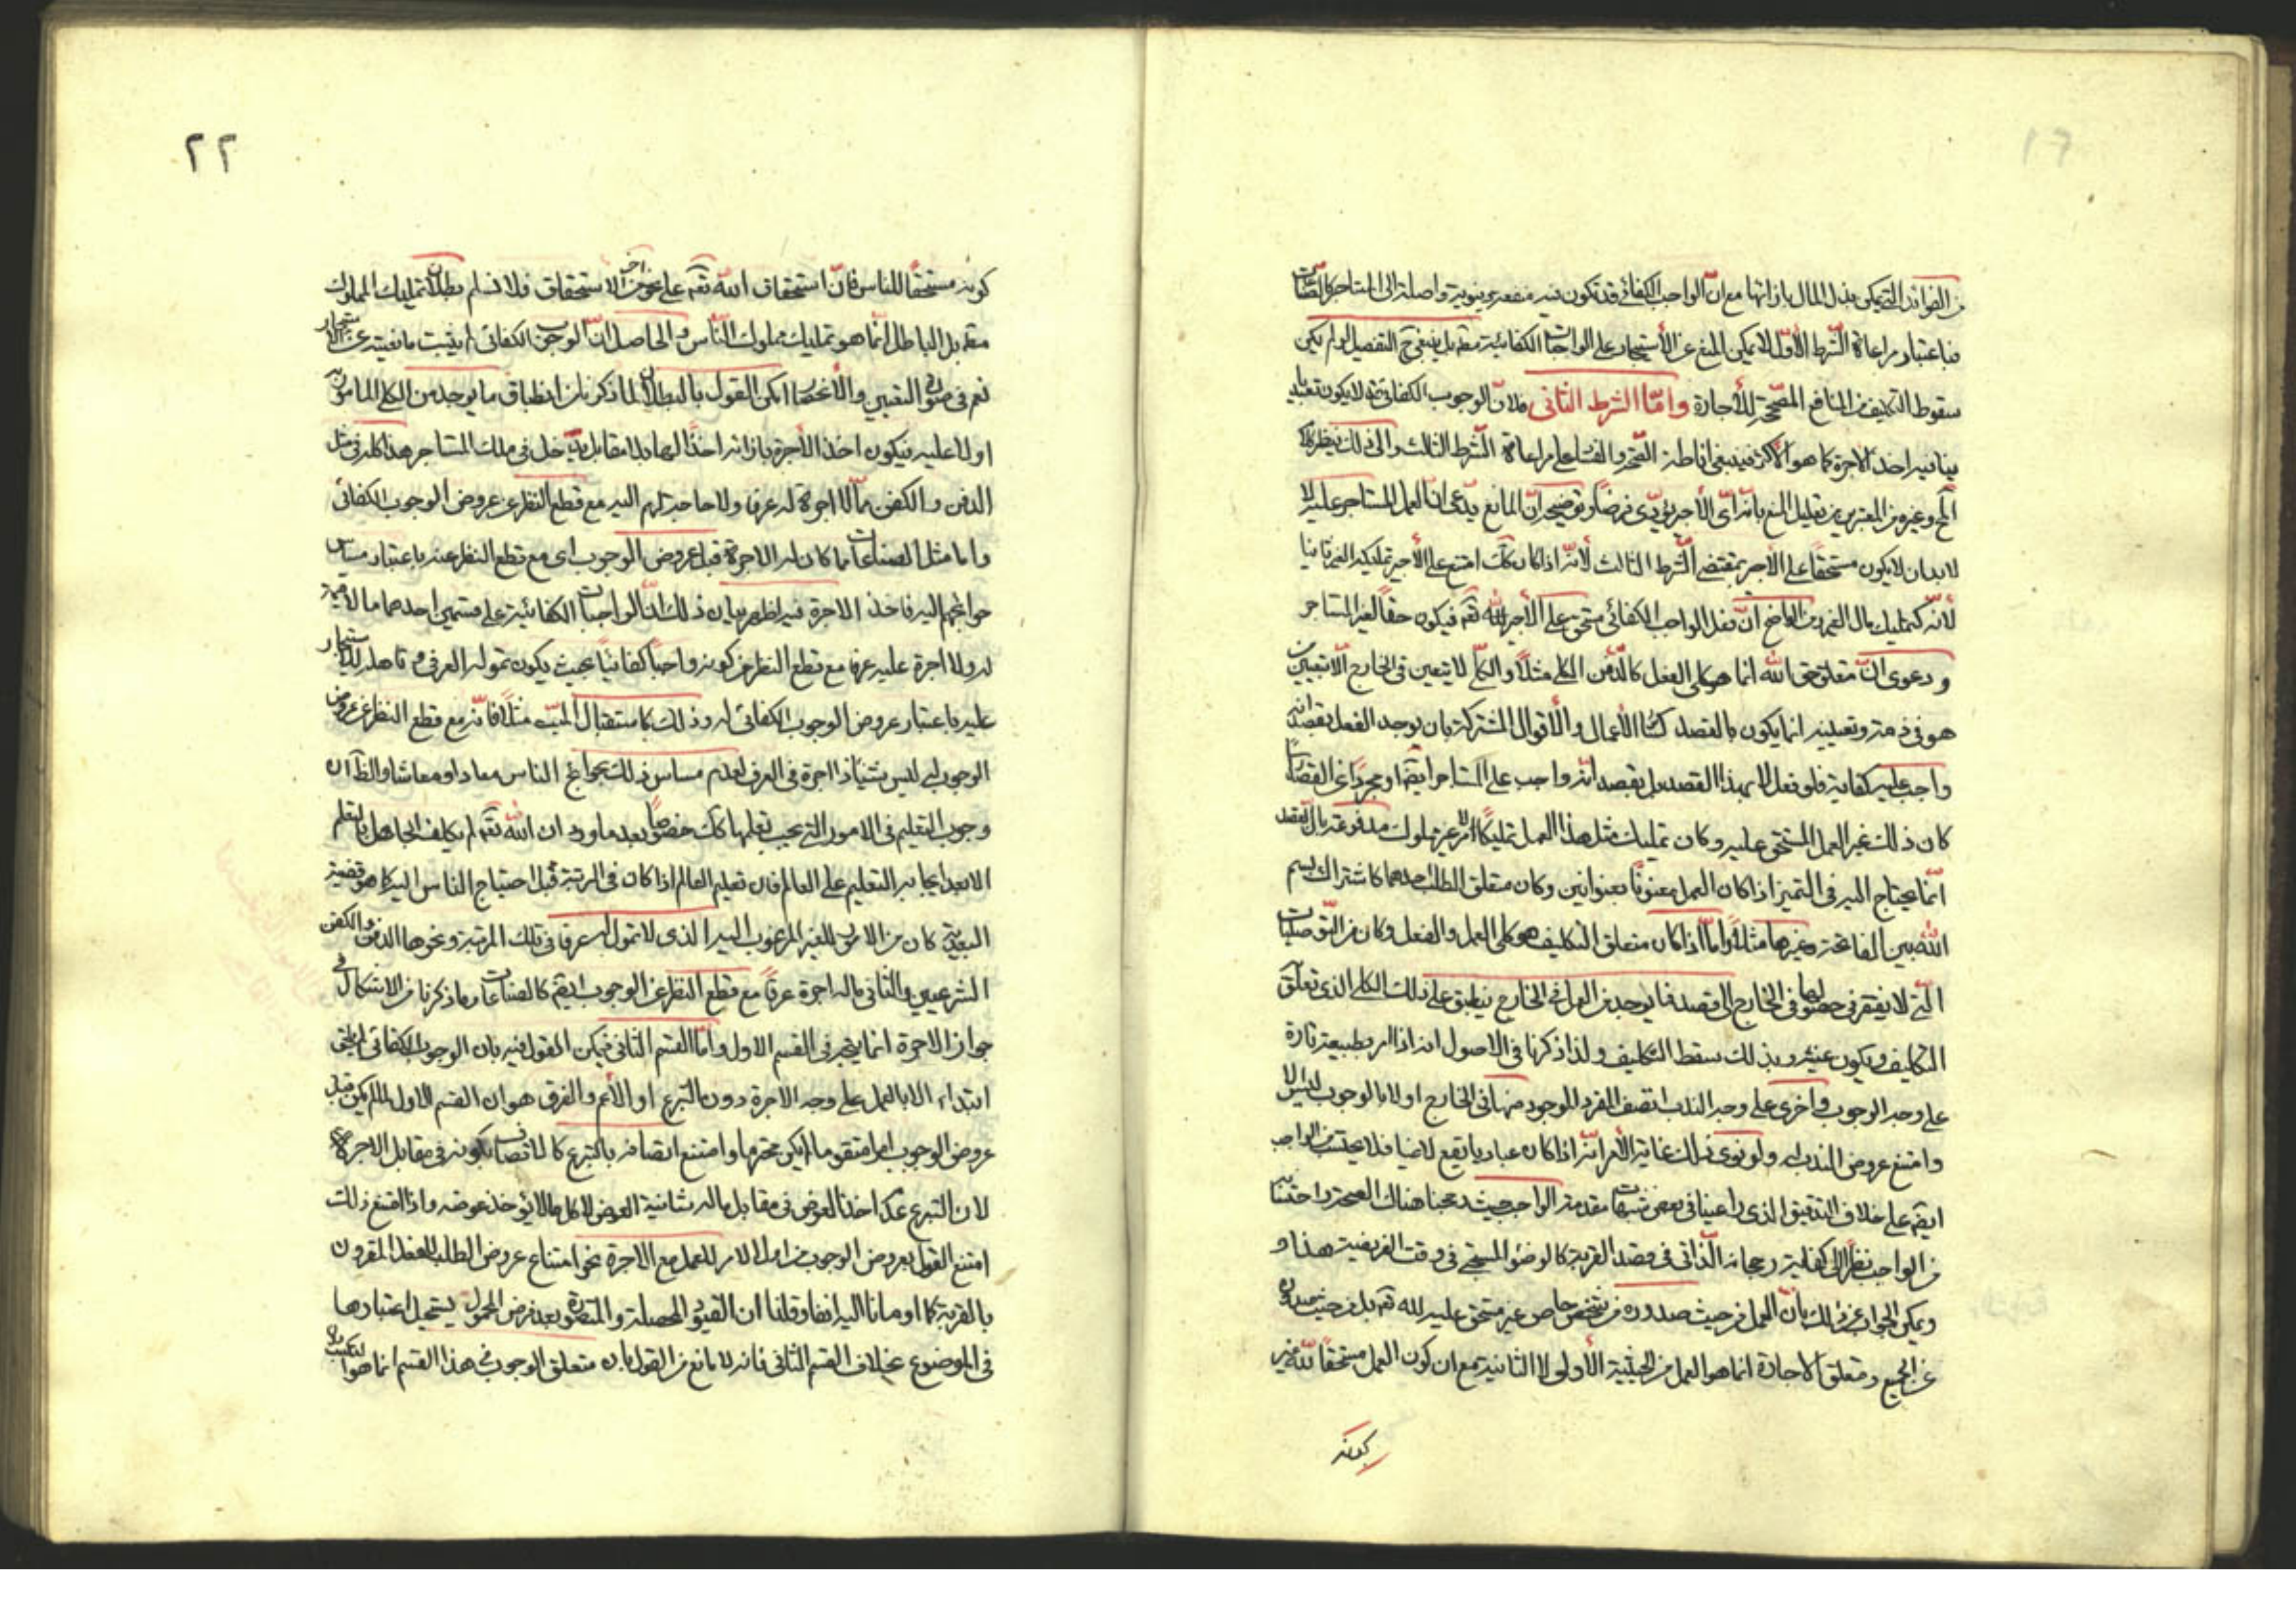 من الفوائد التي يمكن بذل المال بازائها مع ان الواجب الكفائي قد تكون فيه منفعة دينوية واصلة الى المستاجر كالصناعات
فباعتبار مراعاة الشرط الأول لا يمكن المنع عن الأستيجار على الواجبات الكفائية بقم بل ينبغي ح التفصيل لو لم يكن
سقوط التكليف من المنافع المصححة للأجارة وامّا الشرط الثاني فلان الوجوب الكفائي قد لا يكون تعبديا
ينافيه اخذ الاجرة كما هو الأكثر فينبغي اناطة الصحة والفساد على مراعاة الشرط الثالث والى ذلك ينظر كلام
وغيره من المعتبرين من تعليل المنع بانه اى الأجير يؤدى فرضا وتوضيحه انّ المانع يدّعى انّ العمل المستاجر عليه لا
لابد ان لا يكون مستحقا على الأجير بمقتضى الشرط الثالث لأنه اذا كان كك امتنع على الأجير تمليكه الغير ثانيا
لأنه كتمليك مال الغير ومن الواضح انّ فعل الواجب الكفائي مستحق على الأجير لله تقم فيكون حقا لغير المستاجر
ودعوى انّ متعلق حق الله انما هو كلى الفعل كالدفن الكلى مثلا والكلّى لا يتعين في الخارج الا بتعيين من
هو في ذمته وتعيينه انما يكون بالقصد كسائر الأعمال والأقوال المشتركة بان يوجد الفعل بقصد انه
واجب عليه كفاية فلو فعل لا بهذا القصد بل بقصد انه واجب على المستاجر ايضم او مجردا عن القصد راسا
كان ذلك غير العمل المستحق عليه وكان تمليك مثل هذا العمل تمليكا لامر غير مملوك مدفوعة بان القصد
انّما يحتاج اليه في التميز اذا كان العمل معنونا بعنوانين وكان متعلق الطلب احدهما كاشتراك بسم
الله بين الفاتحة وغيرها مثلا وامّا اذا كان متعلق التكليف هو كلى العمل والفعل وكان من التوصليات
التي لا يفتقر في حصولها في الخارج الى قصد فما يوجد من العمل في الخارج ينطبق على ذلك الكلى الذي تعلق
التكليف ويكون عينه وبذلك سقط التكليف ولذا ذكرنا في الاصول انه اذا امر بطبيعة تارة
على وجه الوجوب واخرى على وجه الندب اتصف الفرد الموجود منها في الخارج اولا بالوجوب ليس الا
وامتنع عروض الندب له ولو نوى ذلك غاية الأمر انّه اذا كان عباديا يقع لاغيا فلا يحتسب من الواجب
ايضم على خلاف التدقيق الذي راعينا في بعض تنبيهات مقدمة الواجب حيث رجحنا هناك الصحة واحتسابه
من الواجب نظرا الى كفاية رجحانه الذاتي في قصد القربة كالوضوء المستحبي في وقت الفريضة هذا و
ويمكن الجواب عن ذلك بأن العمل من حيث صدوره من شخص خاص غير مستحق عليه لله تقم بل من حيث صدوره
عن الجميع ومتعلق الاجارة انما هو العمل من الحيثية الأولى لا الثانية مع ان كون العمل مستحقا لله غير
كونه
٢٢
كونه مستحقا للناس فانّ استحقاق الله تقم على نحو اخر من الاستحقاق فلا نسلم بطلان تمليك المملوك
بقم بل الباطل انّما هو تمليك مملوك الناس والحاصل انّ الوجوب الكفائي لم يثبت مانعيته عن الاستيجار
نعم في صورة التعيين والأنحصار امكن القول بالبطلان لما ذكرنا من انطباق ما يوجد من الكلى المامور به
اولا عليه فيكون اخذ الأجرة بازائه اخذا لها بلا مقابل يدخل في ملك المستاجر هذا كله في مثل
الدفن والكفن ممّا لا اجرة له عرفا ولا حاجة لهم اليه مع قطع النظر عن عروض الوجوب الكفائي
واما مثل الصناعات مما كان له الاجرة قبل عروض الوجوب اى مع قطع النظر عنه باعتبار مساس
حوائجهم اليه فاخذ الاجرة فيه اظهر بيان ذلك انّ الواجبات الكفائية على قسمين احدهما ما لا قيمة
له ولا اجرة عليه عرفا مع قطع النظر عن كونه واجبا كفائيا بحيث يكون تموله العرفي وقاهله للاستيجار
عليه باعتبار عروض الوجوب الكفائي له وذلك كاستقبال الميت مثلا فانّه مع قطع النظر عن عروض
الوجوب له ليس بشيئ اذا اجرة في العرف لعدم مساس ذلك بحوائج الناس معادا ومعاشا والظ ان
وجوب التعليم في الامور التي يجب تعلمها كك خصوصا بعد ما ورد ان الله تقم لم يكلف الجاهل بالتعلم
الا بعد ايجابه التعليم على العالم فان تعليم العالم اذا كان في الرتبة قبل احتياج الناس اليه كما هو قضية
البعدية كان من الامور الغير المرغوب اليه الذي لا تمول له عرفا في تلك المرتبة ونحوها الدفن والكفن
الشرعيين والثاني ماله اجرة عرفا مع قطع النظر عن الوجوب ايضم كالصناعات وما ذكرنا من الاشكال في
جواز الاجرة انما يتجه في القسم الاول وامّا القسم الثاني فيمكن القول فيه بان الوجوب الكفائي لم يتعلق
ابتداء الا بالعمل على وجه الاجرة دون التبرع او الأعم والفرق هو ان القسم الاول لما لم يكن قبل
عروض الوجوب امرا متقوما لم يكن محترما وامتنع اتصافه بالتبرع كالاتصاف بكونه في مقابل الاجرة
لان التبرع عدم اخذ العوض في مقابل ماله شانية العوض لا كل ما لا يؤخذ عوضه واذا امتنع ذلك
امتنع القول بعروض الوجوب من اول الامر للعمل مع الاجرة نحو امتناع عروض الطلب للفعل المقرون
بالقربة كما اومانا اليه انفا وقلنا ان القيود المحصلة والمتصورة بعد فرض المحمول يستحيل اعتبارها
في الموضوع بخلاف القسم الثاني فانه لا مانع من القول بان متعلق الوجوب في هذا القسم انما هو